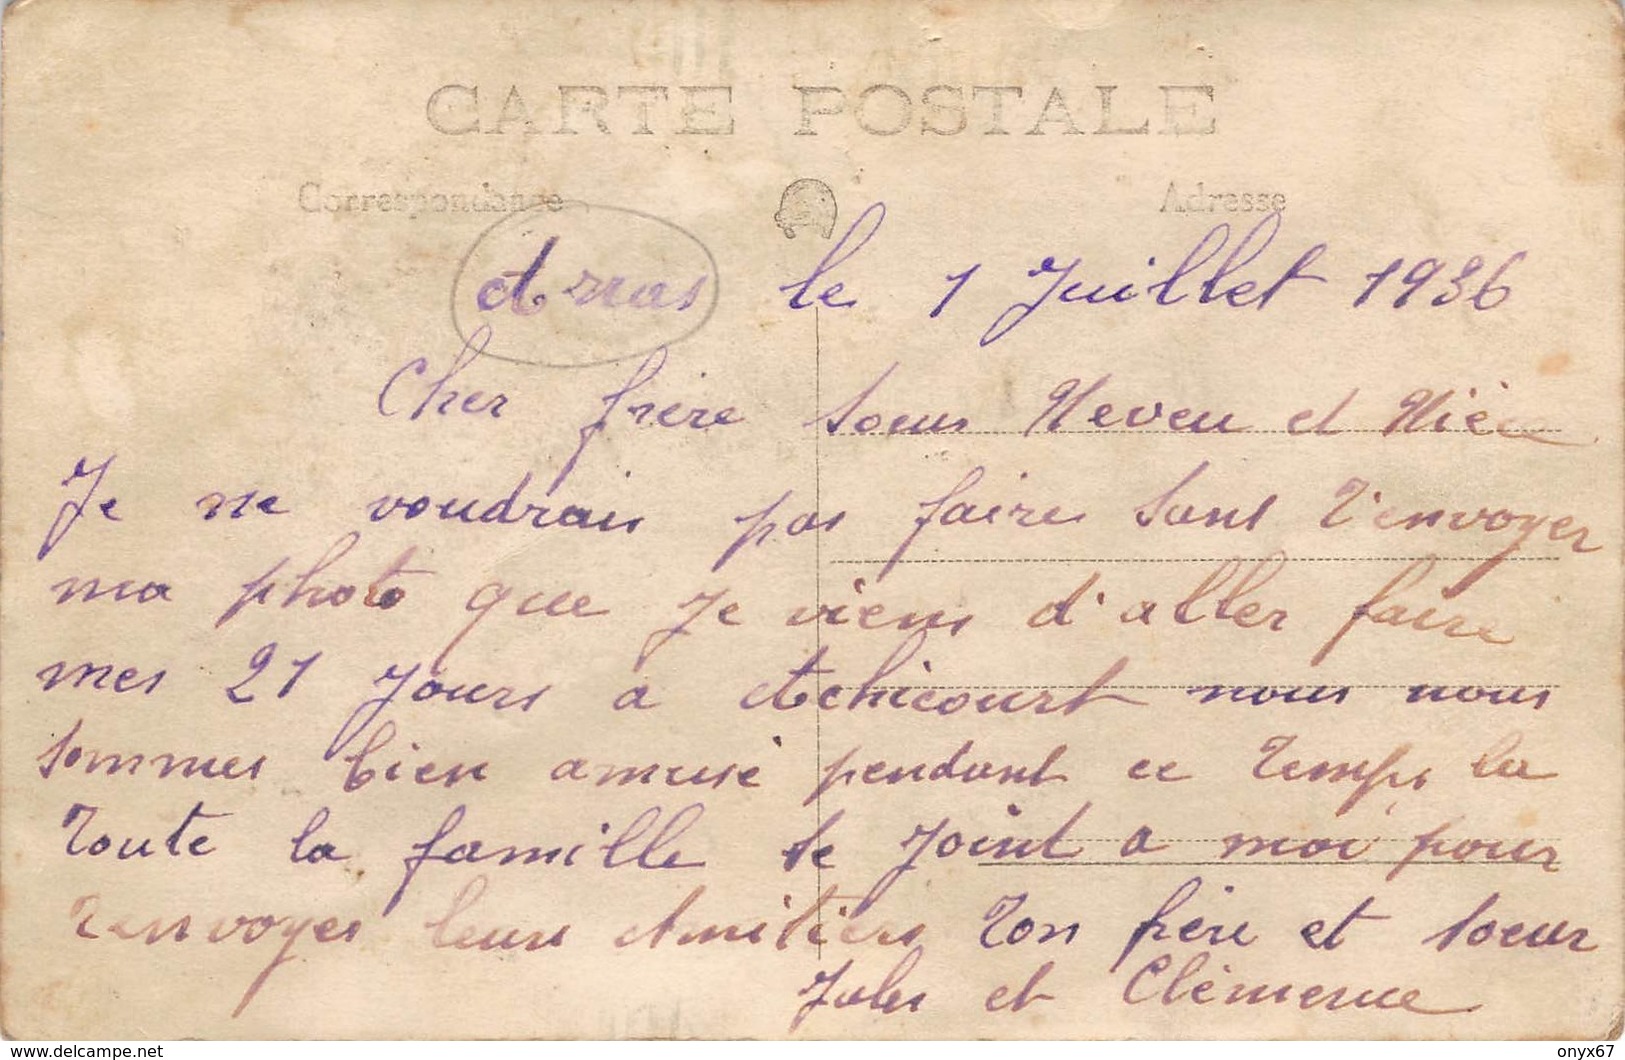 CARTE POSTALE
Correspondance Adresse
Arras le 1 Juillet 1936
Cher frère soeur Neveu et Nièce
Je ne voudrais pas faire sans t'envoyer
ma photo que je viens d'aller faire
mes 21 Jours a Achicourt nous nous
sommes bien amusé pendant ce temps la
toute la famille se joint a moi pour
t'envoyer leurs Amitiers ton frère et soeur
Jules et Clémence
www.delcampe.net
onyx67